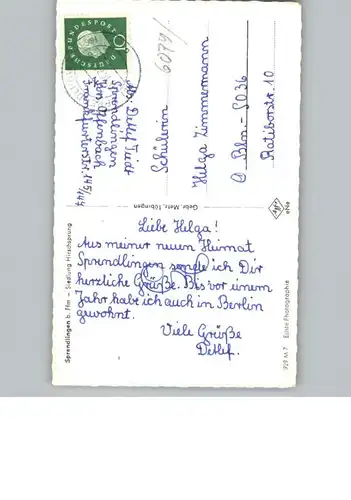 Liebe Helga!
Aus meiner neuen Heimat
Sprendlingen sende ich Dir
herzliche Grüße. Bis vor einem
Jahr habe ich auch in Berlin
gewohnt.
Viele Grüße
Detlef.
Schülerin
Helga Zimmermann
Bln.-SO 36
Ratiborstr. 10
Abs: Detlef
Sprendlingen
Krs. Offenbach
Frankfurterstr. 145/47
6079/
DEUTSCHE BUNDESPOST
10
Sprendlingen b. Ffm – Siedlung Hirschsprung
Gebr. Metz, Tübingen
Echte Photographie
929 M 7